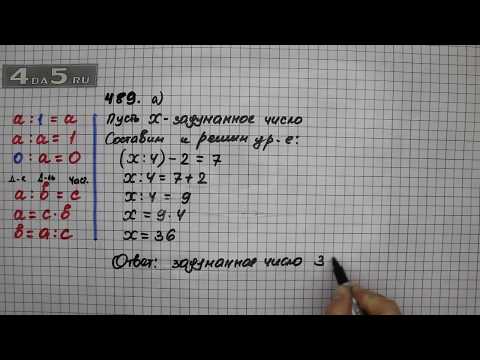 4DA5.RU
489. а)
Пусть x - задуманное число
Составим и решим ур-е:
(x:4)-2=7
x:4=7+2
x:4=9
x=9·4
x=36
Ответ: задуманное число 3
a:1=a
a:a=1
0:a=0
Д-е Д-ль Част.
a:b=c
a=c·b
b=a:c